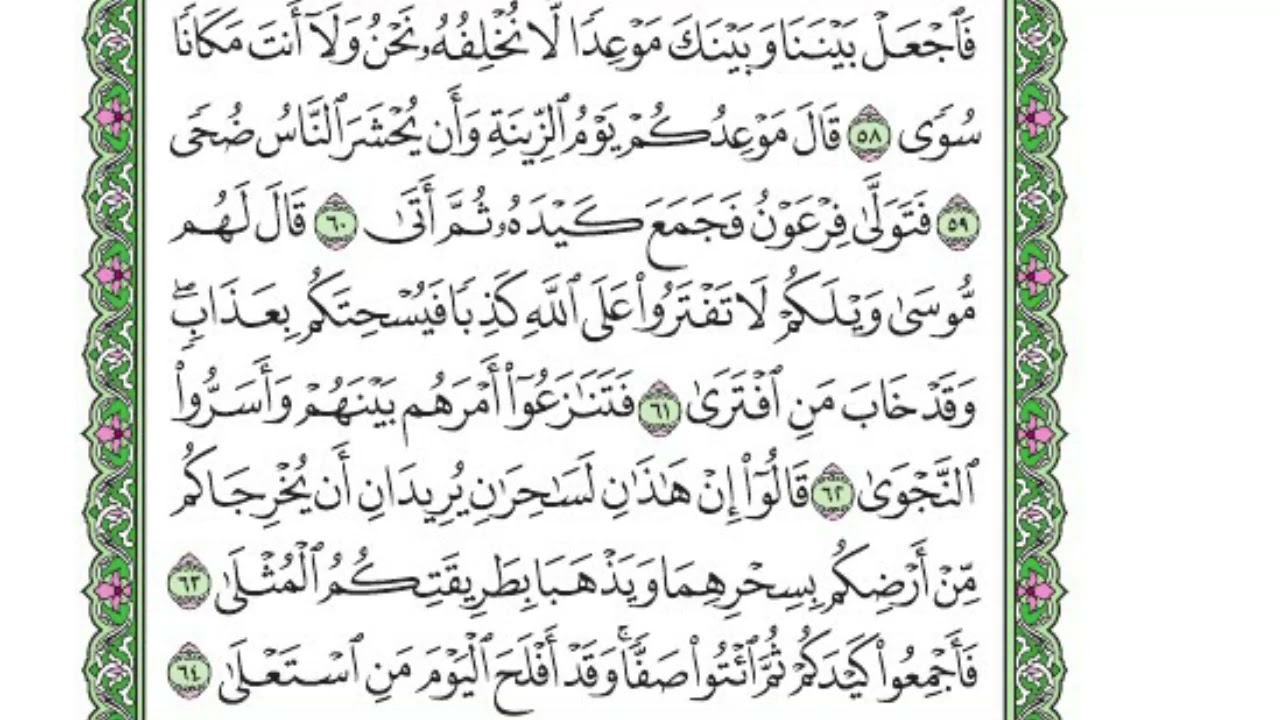 فَٱجۡعَلۡ بَيۡنَنَا وَبَيۡنَكَ مَوۡعِدٗا لَّا نُخۡلِفُهُۥ نَحۡنُ وَلَآ أَنتَ مَكَانٗا
سُوٗى ٥٨ قَالَ مَوۡعِدُكُمۡ يَوۡمُ ٱلزِّينَةِ وَأَن يُحۡشَرَ ٱلنَّاسُ ضُحٗى
٥٩ فَتَوَلَّىٰ فِرۡعَوۡنُ فَجَمَعَ كَيۡدَهُۥ ثُمَّ أَتَىٰ ٦٠ قَالَ لَهُم
مُّوسَىٰ وَيۡلَكُمۡ لَا تَفۡتَرُواْ عَلَى ٱللَّهِ كَذِبٗا فَيُسۡحِتَكُم بِعَذَابٖۖ
وَقَدۡ خَابَ مَنِ ٱفۡتَرَىٰ ٦١ فَتَنَٰزَعُوٓاْ أَمۡرَهُم بَيۡنَهُمۡ وَأَسَرُّواْ
ٱلنَّجۡوَىٰ ٦٢ قَالُوٓاْ إِنۡ هَٰذَٰنِ لَسَٰحِرَٰنِ يُرِيدَانِ أَن يُخۡرِجَاكُم
مِّنۡ أَرۡضِكُم بِسِحۡرِهِمَا وَيَذۡهَبَا بِطَرِيقَتِكُمُ ٱلۡمُثۡلَىٰ ٦٣
فَأَجۡمِعُواْ كَيۡدَكُمۡ ثُمَّ ٱئۡتُواْ صَفّٗاۚ وَقَدۡ أَفۡلَحَ ٱلۡيَوۡمَ مَنِ ٱسۡتَعۡلَىٰ ٦٤